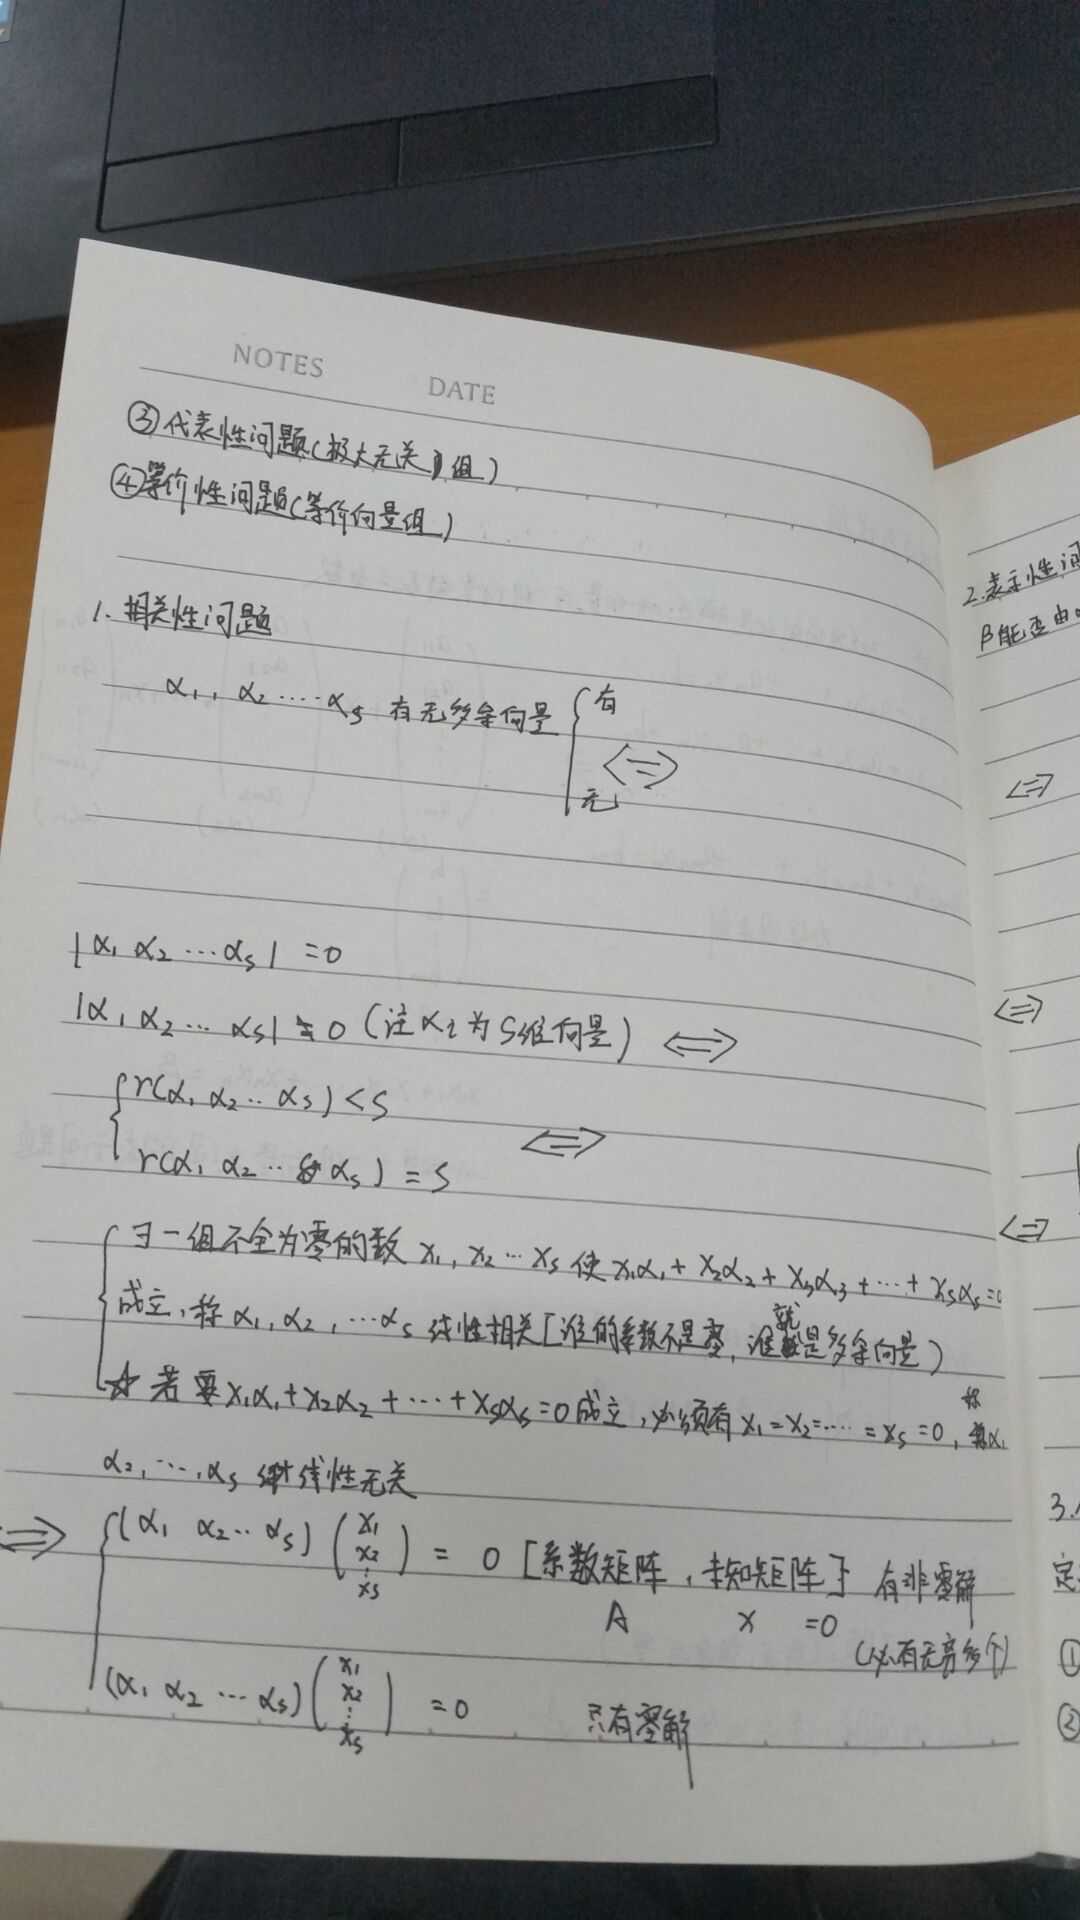 NOTES DATE
③代表性问题(极大无关组)
④等价性问题(等价向量组)
1. 相关性问题
α₁, α₂ ····αₛ 有无多余向量 { 有
<=>
无
|α₁ α₂ ···αₛ| =0
|α₁ α₂··· αₛ| ≠0 (注αᵢ为S维向量) <=>
{ r(α₁ α₂·· αₛ) <S
<=>
r(α₁ α₂·· αₛ) = S
{ ∃一组不全为零的数 x₁, x₂ ··· xₛ 使 x₁α₁+ x₂α₂ + x₃α₃ +···+ xₛαₛ=0
成立,称α₁, α₂, ···αₛ 线性相关[谁的系数不是零,谁就是多余向量)
☆ 若要x₁α₁+x₂α₂+···+xₛαₛ=0成立,必须有 x₁=x₂=····=xₛ=0, 称α₁
α₂, ···,αₛ 线性无关
<=> { (α₁ α₂·· αₛ) (x₁ x₂ ⋮ xₛ) = 0 [系数矩阵,未知矩阵] 有非零解
A x =0
(必有无穷多个)
(α₁ α₂ ··· αₛ) (x₁ x₂ ⋮ xₛ) =0 只有零解
2.表示性问
β能否由
<=>
<=>
<=>
3.
定
①
②